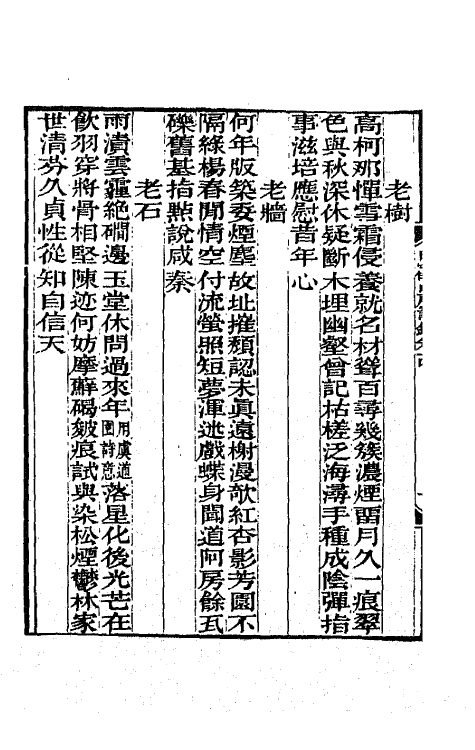 老樹
高柯那憚雪霜侵養就名材聳百尋幾簇濃煙畱月久一痕翠
色與秋深休疑斷木埋幽壑曾記枯槎泛海潯手種成陰彈指
事滋培應慰昔年心
老牆
何年版築委煙塵故址摧頽認未眞遠榭漫欹紅杏影芳園不
隔綠楊春閒情空付流螢照短夢渾迷戲蝶身聞道阿房餘瓦
礫舊基指點說咸秦
老石
雨漬雲龕絕磵邊玉堂休問過來年用虞道園詩意落星化後光芒在
飮羽穿將骨相堅陳迹何妨摩蘚碣皴痕試與染松煙鬱林家
世清芬久貞性從知自信天